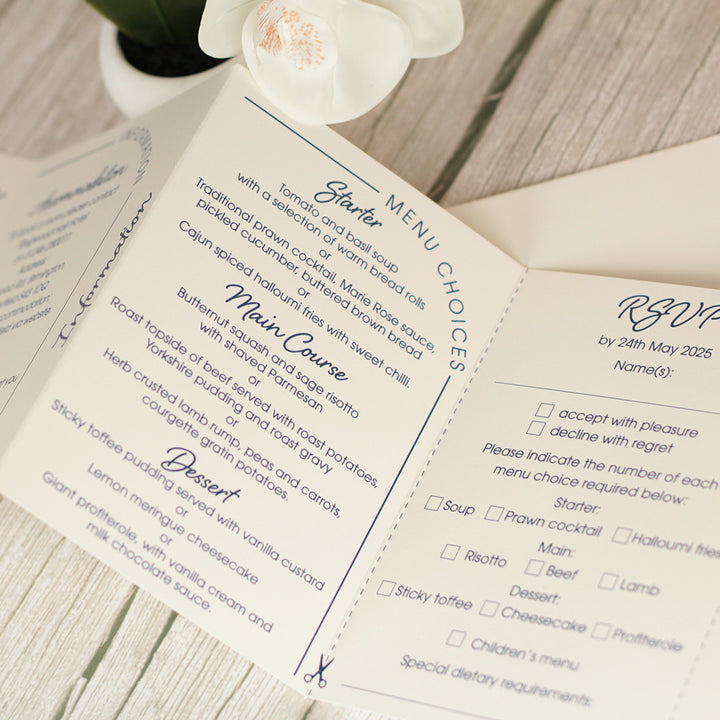 INFORMATION
Accommodation
Information
MENU CHOICES
Starter
Tomato and basil soup
with a selection of warm bread rolls
or
Traditional prawn cocktail, Marie Rose sauce,
pickled cucumber, buttered brown bread
or
Cajun spiced halloumi fries with sweet chilli.
Main Course
Butternut squash and sage risotto
with shaved Parmesan
or
Roast topside of beef served with roast potatoes,
Yorkshire pudding and roast gravy
or
Herb crusted lamb rump, peas and carrots,
courgette gratin potatoes.
Dessert
Sticky toffee pudding served with vanilla custard
or
Lemon meringue cheesecake
or
Giant profiterole, with vanilla cream and
milk chocolate sauce.
RSVP
by 24th May 2025
Name(s):
accept with pleasure
decline with regret
Please indicate the number of each
menu choice required below:
Starter:
Soup Prawn cocktail Halloumi fries
Main:
Risotto Beef Lamb
Dessert:
Sticky toffee Cheesecake Profiterole
Children's menu
Special dietary requirements: